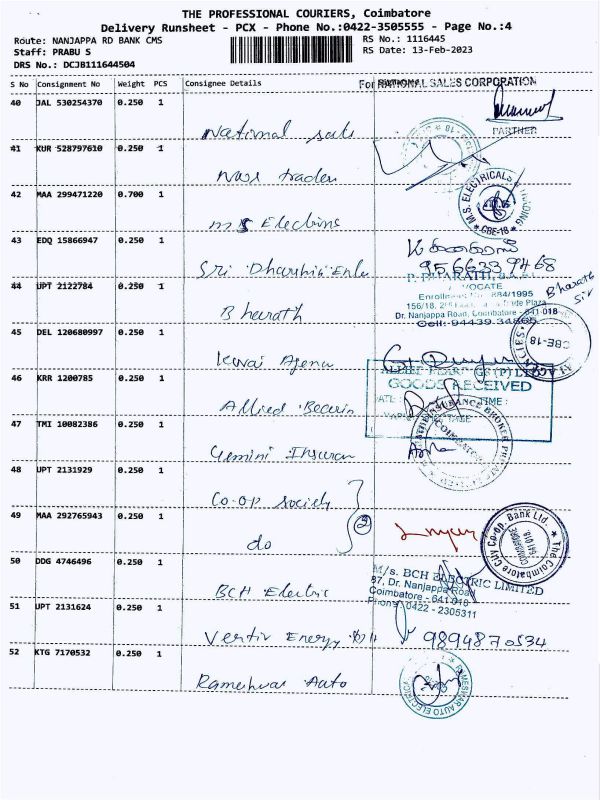 THE PROFESSIONAL COURIERS, Coimbatore
Delivery Runsheet - PCX - Phone No.:0422-3505555 - Page No.:4
Route: NANJAPPA RD BANK CMS
RS No.: 1116445
Staff: PRABU S
RS Date: 13-Feb-2023
DRS No.: DCJB111644504
S No Consignment No Weight PCS Consignee Details
For NATIONAL SALES CORPORATION
40 JAL 530254370 0.250 1
National sale
PARTNER
41 KUR 528797610 0.250 1
traders
M.S. ELECTRICALS &
CBE-18
42 MAA 299471220 0.700 1
43 EDQ 15866947 0.250 1
Sri
44 UPT 2122784 0.250 1
Bharath
ADVOCATE
Dr. Nanjappa Road, Coimbatore - 641-018
Cell: 94439
Bharath
Sir
45 DEL 120680997 0.250 1
Kovai Agency
CBE-18
46 KRR 1200785 0.250 1
Allied Bearin
GOODS RECEIVED
DATE: TIME:
47 TMI 10082386 0.250 1
Gemini Insuran
INSURANCE BROKER
COIMBATORE
48 UPT 2131929 0.250 1
Co-op society
2
49 MAA 292765943 0.250 1
do
The Coimbatore City Co-op. Bank Ltd.
COIMBATORE
641 018
50 DDG 4746496 0.250 1
BCH Electric
M/s. BCH ELECTRIC LIMITED
87, Dr. Nanjappa Road
Coimbatore - 641 018
Phone: 0422 - 2305311
51 UPT 2131624 0.250 1
Vertiv Energy
9894870534
52 KTG 7170532 0.250 1
Rameshwar Auto
RAMESWAR AUTO ELECTRICAL